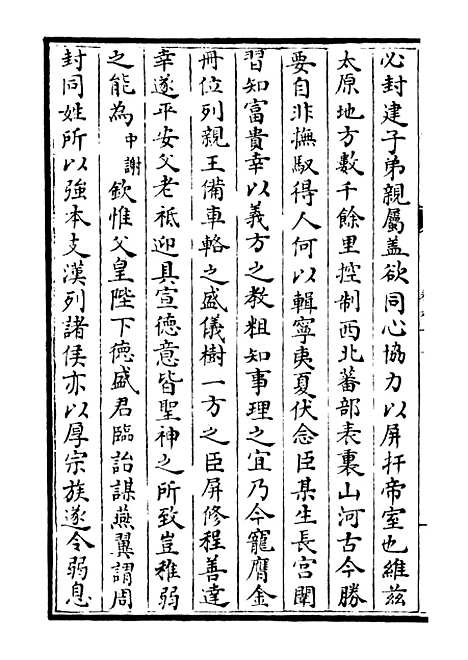 必封建子弟親屬盖欲同心協力以屏扞帝室也維茲
太原地方數千餘里控制西北蕃部表裏山河古今勝
要自非撫馭得人何以輯寧夷夏伏念臣某生長宮闈
習知富貴幸以義方之教粗知事理之宜乃今寵膺金
冊位列親王備車輅之盛儀樹一方之臣屏修程善達
幸遂平安父老祗迎具宣德意皆聖神之所致豈稚弱
之能為中謝欽惟父皇陛下德盛君臨詒謀燕翼謂周
封同姓所以強本支漢列諸侯亦以厚宗族遂令弱息